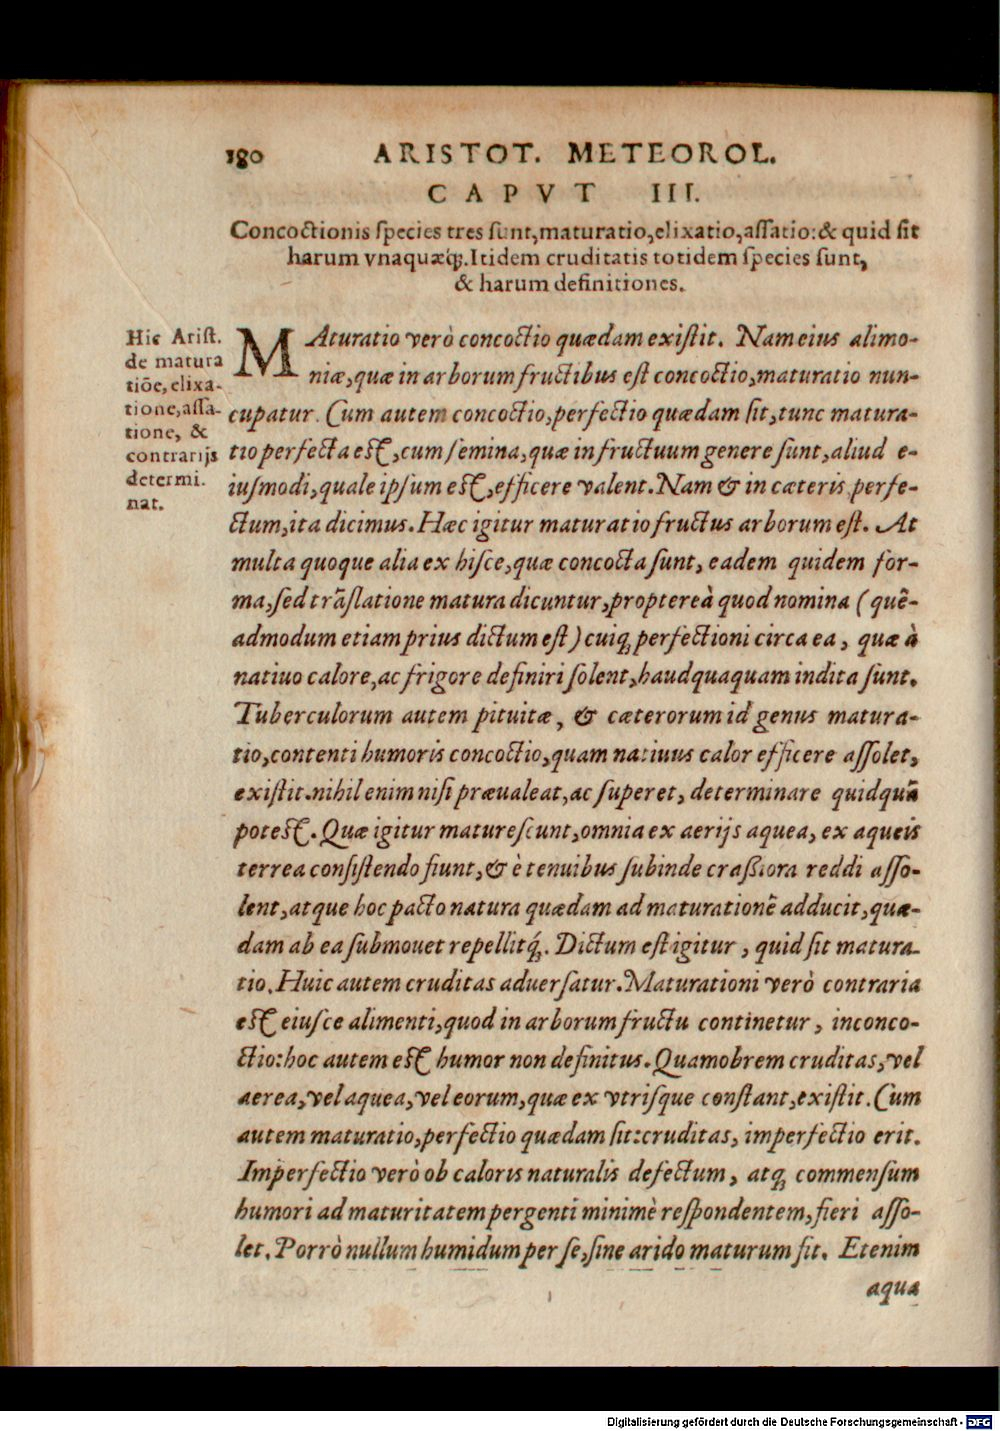 180 ARISTOT. METEOROL.
CAPVT III.
Concoctionis ſpecies tres ſunt,maturatio,elixatio,aſſatio:& quid ſit
harum vnaquæq́;.Itidem cruditatis totidem ſpecies ſunt,
& harum definitiones.
Hic Ariſt.
de matura
tiōe, elixa-
tione,aſſa-
tione, &
contrarijs
determi.
nat.
MAturatio verò concoctio quædam exiſtit. Nam eius alimo-
niæ,quæ in arborum fructibus eſt concoctio,maturatio nun-
cupatur. Cum autem concoctio,perfectio quædam ſit,tunc matura-
tio perfecta eſt,cum ſemina,quæ in fructuum genere ſunt,aliud e-
iuſmodi,quale ipſum eſt,efficere valent.Nam & in cæteris perfe-
ctum,ita dicimus.Hæc igitur maturatio fructus arborum eſt. At
multa quoque alia ex hiſce,quæ concocta ſunt, eadem quidem for-
ma,ſed trāſlatione matura dicuntur,propterea̍ quod nomina (quē-
admodum etiam prius dictum eſt) cuiq; perfectioni circa ea, quæ à
natiuo calore,ac frigore definiri ſolent,haudquaquam indita ſunt.
Tuberculorum autem pituitæ, & cæterorum id genus matura-
tio,contenti humoris concoctio,quam natiuus calor efficere aſſolet,
exiſtit.nihil enim niſi præualeat,ac ſuperet, determinare quidquā
poteſt.Quæ igitur matureſcunt,omnia ex aerijs aquea, ex aqueis
terrea conſiſtendo fiunt,& è tenuibus ſubinde craßiora reddi aſſo-
lent,atque hoc pacto natura quædam ad maturationē adducit,quæ-
dam ab ea ſubmouet repellitq́;. Dictum eſt igitur, quid ſit matura-
tio.Huic autem cruditas aduerſatur.Maturationi verò contraria
eſt eiuſce alimenti,quod in arborum fructu continetur, inconco-
ctio:hoc autem eſt humor non definitus.Quamobrem cruditas,vel
aerea,vel aquea,vel eorum,quæ ex vtriſque conſtant,exiſtit.Cùm
autem maturatio,perfectio quædam ſit:cruditas, imperfectio erit.
Imperfectio verò ob caloris naturalis defectum, atq; commenſum
humori ad maturitatem pergenti minimè reſpondentem,fieri aſſo-
let.Porrò nullum humidum per ſe,ſine arido maturum ſit. Etenim
aqua
Digitalisierung gefördert durch die Deutsche Forschungsgemeinschaft - DFG